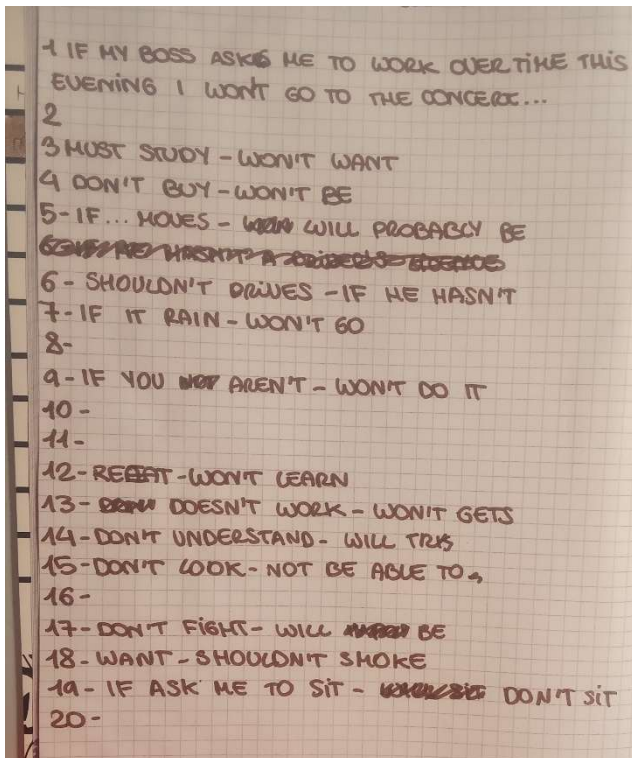 1 IF MY BOSS ASKS ME TO WORK OVER TIME THIS
EVENING I WON'T GO TO THE CONCERT...
2
3 MUST STUDY - WON'T WANT
4 DON'T BUY - WON'T BE
5- IF... MOVES - WILL PROBABLY BE
6- SHOULDN'T DRIVES - IF HE HASN'T
7- IF IT RAIN - WON'T GO
8-
9- IF YOU AREN'T - WON'T DO IT
10-
11-
12- REPEAT - WON'T LEARN
13- DOESN'T WORK - WON'T GETS
14- DON'T UNDERSTAND - WILL TRIS
15- DON'T LOOK - NOT BE ABLE TO
16-
17- DON'T FIGHT - WILL BE
18- WANT - SHOULDN'T SMOKE
19- IF ASK ME TO SIT - DON'T SIT
20-